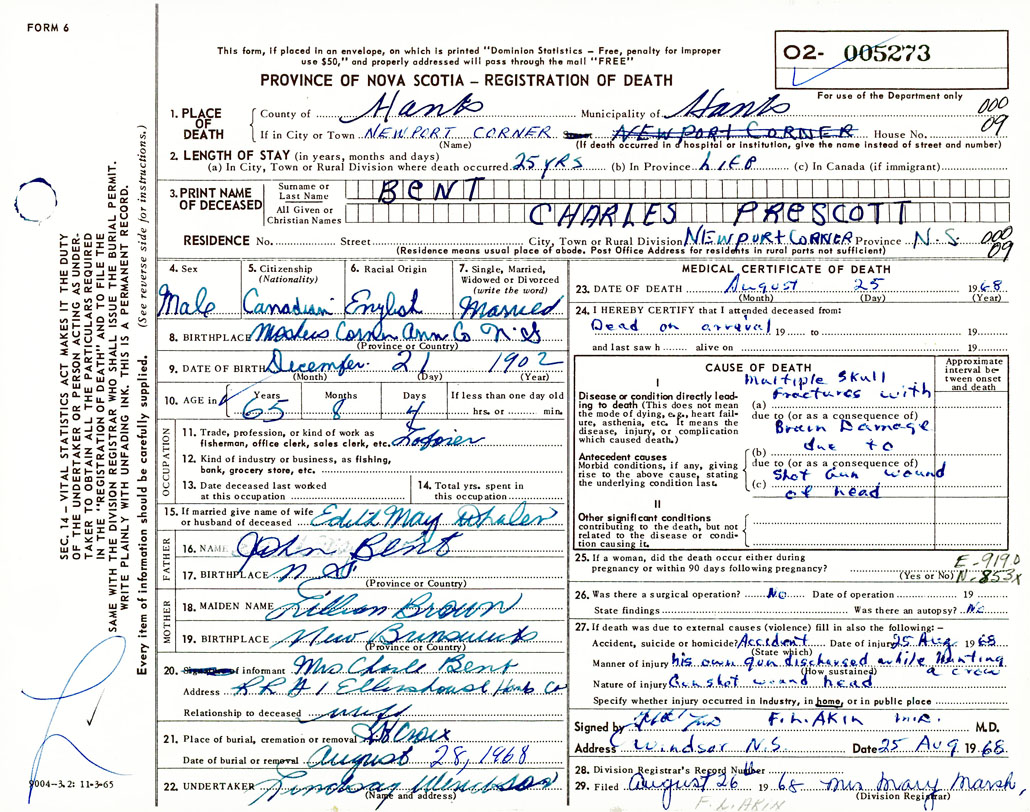 FORM 6
This form, if placed in an envelope, on which is printed "Dominion Statistics – Free, penalty for improper
use $50," and properly addressed will pass through the mail "FREE"
PROVINCE OF NOVA SCOTIA – REGISTRATION OF DEATH
O2- 005273
For use of the Department only
1. PLACE OF DEATH
County of Hants Municipality of Hants 000
If in City or Town NEWPORT CORNER NEWPORT CORNER House No. 09
(Name) (If death occurred in a hospital or institution, give the name instead of street and number)
2. LENGTH OF STAY (in years, months and days)
(a) In City, Town or Rural Division where death occurred 25 YRS (b) In Province LIFE (c) In Canada (if immigrant)
3. PRINT NAME OF DECEASED
Surname or Last Name BENT
All Given or Christian Names CHARLES PRESCOTT
RESIDENCE No. Street City, Town or Rural Division NEWPORT CORNER Province N.S. 000 09
(Residence means usual place of abode. Post Office Address for residents in rural parts not sufficient)
4. Sex Male
5. Citizenship (Nationality) Canadian
6. Racial Origin English
7. Single, Married, Widowed or Divorced (write the word) Married
8. BIRTHPLACE Corner Ann Co N.S
(Province or Country)
9. DATE OF BIRTH December 21 1902
(Month) (Day) (Year)
10. AGE in Years 65 Months 8 Days 4 If less than one day old hrs. or min.
OCCUPATION
11. Trade, profession, or kind of work as
fisherman, office clerk, sales clerk, etc.
12. Kind of industry or business, as fishing,
bank, grocery store, etc.
13. Date deceased last worked
at this occupation
14. Total yrs. spent in
this occupation
15. If married give name of wife
or husband of deceased Edith May Whalen
FATHER
16. NAME John Bent
17. BIRTHPLACE N.S
(Province or Country)
MOTHER
18. MAIDEN NAME Lillian Brown
19. BIRTHPLACE New Brunswick
(Province or Country)
20. of informant Mrs Charle Bent
Address R.R # 1 Ellershouse Hants Co
Relationship to deceased wife
21. Place of burial, cremation or removal St Croix
Date of burial or removal August 28, 1968
22. UNDERTAKER Lindsay
(Name and address)
MEDICAL CERTIFICATE OF DEATH
23. DATE OF DEATH August 25 1968
(Month) (Day) (Year)
24. I HEREBY CERTIFY that I attended deceased from:
Dead on arrival 19 to 19
and last saw h alive on 19
CAUSE OF DEATH
Approximate interval between onset and death
I
Disease or condition directly leading to death (This does not mean the mode of dying, e.g., heart failure, asthenia, etc. It means the disease, injury, or complication which caused death.)
(a) Multiple Skull Fractures with
due to (or as a consequence of)
Brain Damage
Antecedent causes
Morbid conditions, if any, giving rise to the above cause, stating the underlying condition last.
(b) due to
due to (or as a consequence of)
(c) Shot Gun wound of head
II
Other significant conditions
contributing to the death, but not related to the disease or condition causing it.
25. If a woman, did the death occur either during
pregnancy or within 90 days following pregnancy?
(Yes or No)
E-9190
N-853x
26. Was there a surgical operation? No Date of operation 19
State findings Was there an autopsy? No
27. If death was due to external causes (violence) fill in also the following: –
Accident, suicide or homicide? Accident Date of injury 25 Aug 1968
(State which)
Manner of injury his own gun discharged while Hunting a crow
(How sustained)
Nature of injury Gunshot wound head
Specify whether injury occurred in industry, in home, or in public place
Signed by F. L. AKIN M.D. M.D.
Address Windsor N.S. Date 25 Aug 1968
28. Division Registrar's Record Number
29. Filed August 26 1968 Mrs Mary Marsh,
(Division Registrar)
F. L. AKIN
SEC. 14 – VITAL STATISTICS ACT MAKES IT THE DUTY
OF THE UNDERTAKER OR PERSON ACTING AS UNDER-
TAKER TO OBTAIN ALL THE PARTICULARS REQUIRED
IN THE "REGISTRATION OF DEATH" AND TO FILE THE
SAME WITH THE DIVISION REGISTRAR WHO SHALL ISSUE THE BURIAL PERMIT.
WRITE PLAINLY WITH UNFADING INK. THIS IS A PERMANENT RECORD.
Every item of information should be carefully supplied. (See reverse side for instructions.)
9004-3.2: 11-3-65